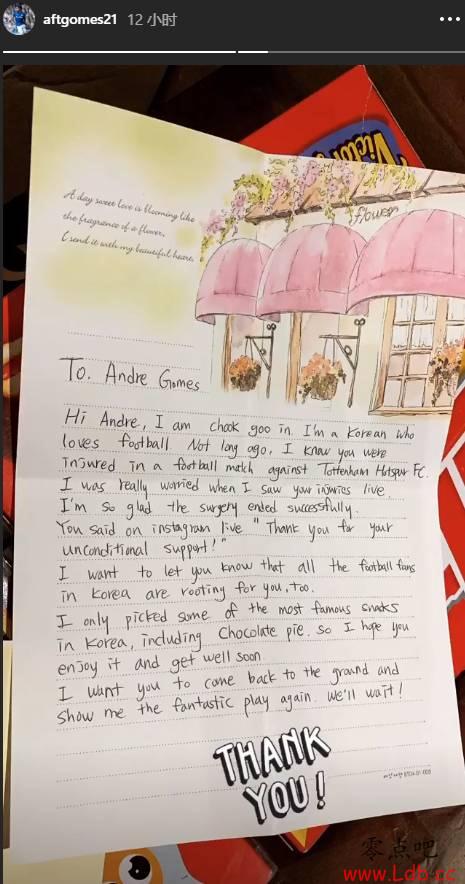 aftgomes21 12 小时
Victor
flower
A day sweet love is blooming like
the fragrance of a flower,
I send it with my beautiful heart.
To. Andre Gomes
Hi Andre, I am chook goo in. I'm a Korean who
loves football Not long ago, I know you were
injured in a football match against Tottenham Hotspur FC.
I was really worried when I saw your injuries live.
I'm so glad the surgery ended successfully.
You said on instagram live "Thank you for your
unconditional support!"
I want to let you know that all the football fans
in Korea are rooting for you, too.
I only picked some of the most famous snacks
in Korea, including Chocolate pie. so I hope you
enjoy it and get well soon
I want you to come back to the ground and
show me the fantastic play again. We'll wait!
THANK
YOU!
零点吧
www.Ldb.cc